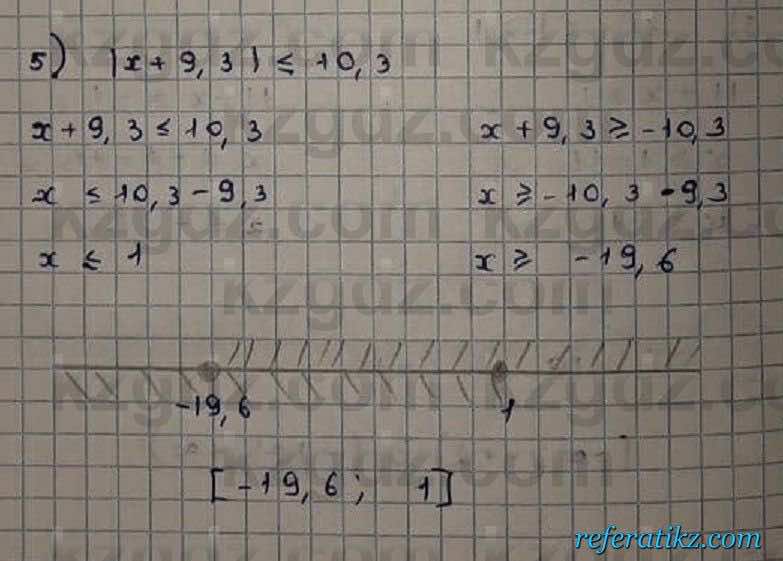 5) |x + 9,3| ≤ 10,3
x + 9,3 ≤ 10,3
x + 9,3 ≥ -10,3
x ≤ 10,3 - 9,3
x ≥ -10,3 - 9,3
x ≤ 1
x ≥ -19,6
-19,6
1
[-19,6; 1]
kzgdz.com
referatikz.com